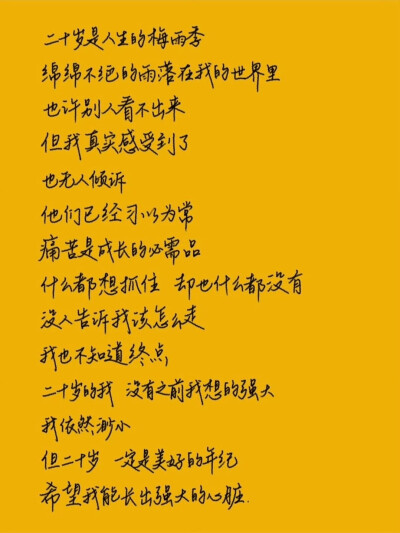 二十岁是人生的梅雨季
绵绵不绝的雨落在我的世界里
也许别人看不出来
但我真实感受到了
也无人倾诉
他们已经习以为常
痛苦是成长的必需品
什么都想抓住 却也什么都没有
没人告诉我该怎么走
我也不知道终点
二十岁的我 没有之前我想的强大
我依然渺小
但二十岁 一定是美好的年纪
希望我能长出强大的心脏.